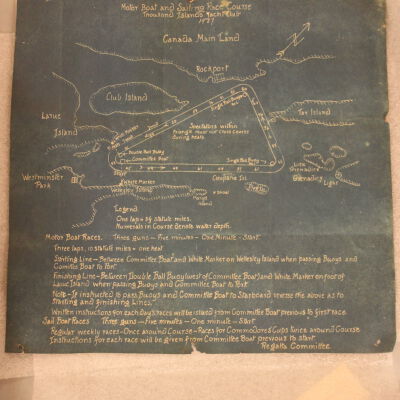 Motor Boat and Sailing Race Course
Thousand Islands Yacht Club
Canada Main Land
Rockport
Club Island
Tar Island
Spectators within
Triangle must not cross course
during heats
Island
Double Ball Buoy
Committee Boat
Single Ball Buoy
Westminster
Park
White Marker
Wellesley Island
Grenadier
Light
Shoal
Island
Legend
One lap = 3⅓ statute miles.
Numerals in Course denote water depth.
Motor Boat Races. Three guns – Five minutes – One Minute – Start.
Three laps, 10 statute miles = one heat
Starting Line – Between Committee Boat and White Marker on Wellesley Island when passing Buoys and
Committee Boat to Port.
Finishing Line – Between Double Ball Buoy (west of Committee Boat) and White Marker on foot of
Island when passing Buoys and Committee Boat to Port
Note – If instructed to pass Buoys and Committee Boat to Starboard reverse the above as to
Starting and finishing Lines.
Written instructions for each days races will be issued from Committee Boat previous to first race.
Sail Boat Races Three guns – Five minutes – One minute – Start
Regular weekly races – Once around Course – Races for Commodores Cups twice around Course
Instructions for each race will be given from Committee Boat previous to start.
Regatta Committee.